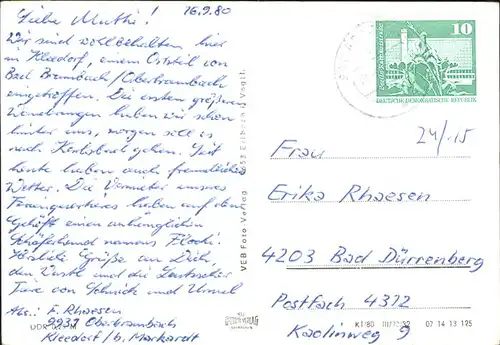 Liebe Mutti! 16.9.80
Wir sind wohlbehalten hier
in Kleedorf, einem Ortsteil von
Bad Brambach/Oberbrambach
eingetroffen. Die ersten größeren
Wanderungen haben wir schon
hinter uns, morgen soll es
nach gehen. Seit
heute haben auch freundliches
Wetter. Die Vermieter unseres
haben auf dem
Gehöft einen anhänglichen
Schäferhund namens Flocki.
Herzliche Grüße an Dich,
den und die
Tiere von und
Abs.: F. Rhaesen
9931 Oberbrambach
Kleedorf / b. Markardt
VEB Foto-Verlag 9653 Erlbach i. Vogtl.
10
DEUTSCHE DEMOKRATISCHE REPUBLIK
24/.15
Frau
Erika Rhaesen
4203 Bad Dürrenberg
Postfach 4312
Kaolinweg 9
K1/80
07 14 13 125